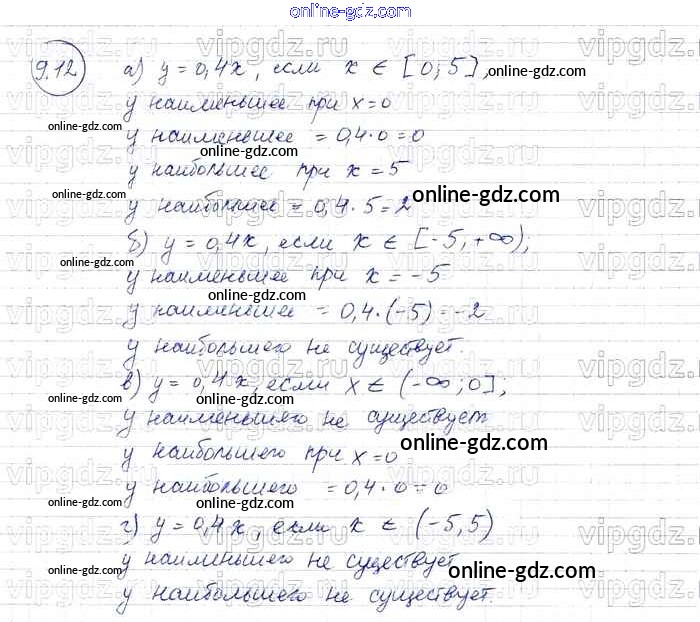 online-gdz.com
9.12 а) y = 0,4x, если x ∈ [0; 5],
online-gdz.com
y наименьшее при x = 0
online-gdz.com
y наименьшее = 0,4 · 0 = 0
y наибольшее при x = 5
online-gdz.com
online-gdz.com
y наибольшее = 0,4 · 5 = 2
online-gdz.com
б) y = 0,4x, если x ∈ [-5, +∞);
y наименьшее при x = -5
online-gdz.com
y наименьшее = 0,4 · (-5) = -2
y наибольшего не существует.
в) y = 0,4x, если x ∈ (-∞; 0];
online-gdz.com
online-gdz.com
y наименьшего не существует
online-gdz.com
y наибольшего при x = 0
y наибольшего = 0,4 · 0 = 0
online-gdz.com
online-gdz.com
г) y = 0,4x, если x ∈ (-5, 5)
y наименьшего не существует
online-gdz.com
y наибольшего не существует.
vipgdz.ru